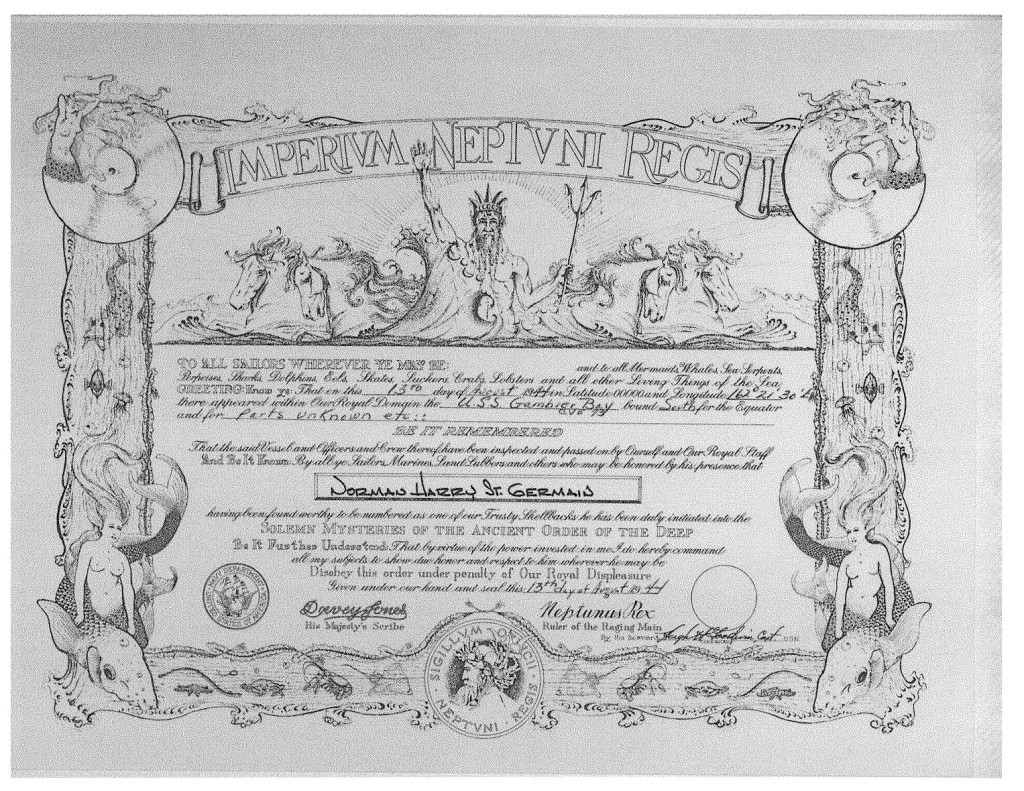 IMPERIVM NEPTVNI REGIS
TO ALL SAILORS WHEREVER YE MAY BE: and to all Mermaids, Whales, Sea Serpents,
Porpoises, Sharks, Dolphins, Eels, Skates, Suckers, Crabs, Lobsters and all other Living Things of the Sea
GREETING: Know ye: That on this 13th day of August 1944 in Latitude 00000 and Longitude 162° 21' 30"
there appeared within Our Royal Domain the U.S.S. Gambier Bay bound South for the Equator
CVE 73
and for Ports unknown etc::
BE IT REMEMBERED
That the said Vessel and Officers and Crew thereof have been inspected and passed on by Ourself and Our Royal Staff
And Be It Known: By all ye Sailors, Marines, Land Lubbers and others who may be honored by his presence that
NORMAN HARRY ST. GERMAIN
having been found worthy to be numbered as one of our Trusty Shellbacks he has been duly initiated into the
SOLEMN MYSTERIES OF THE ANCIENT ORDER OF THE DEEP
Be It Further Understood: That by virtue of the power invested in me I do hereby command
all my subjects to show due honor and respect to him wherever he may be
Disobey this order under penalty of Our Royal Displeasure
Given under our hand and seal this 13th day of August 1944
NAVY DEPARTMENT
Davey Jones
His Majesty's Scribe
Neptunus Rex
Ruler of the Raging Main
By His Servant Capt. USN
SIGILLVM OFFICII
NEPTVNI REGIS